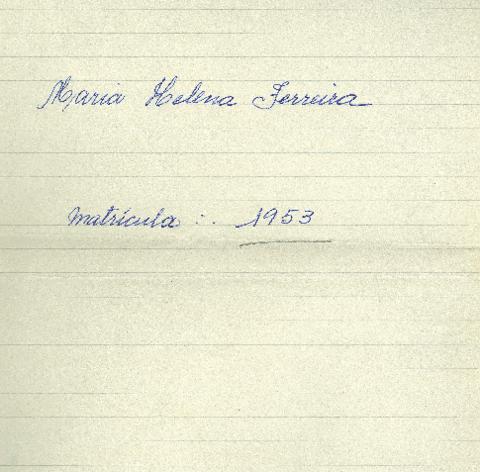 Maria Helena Ferreira
Matrícula :. 1953